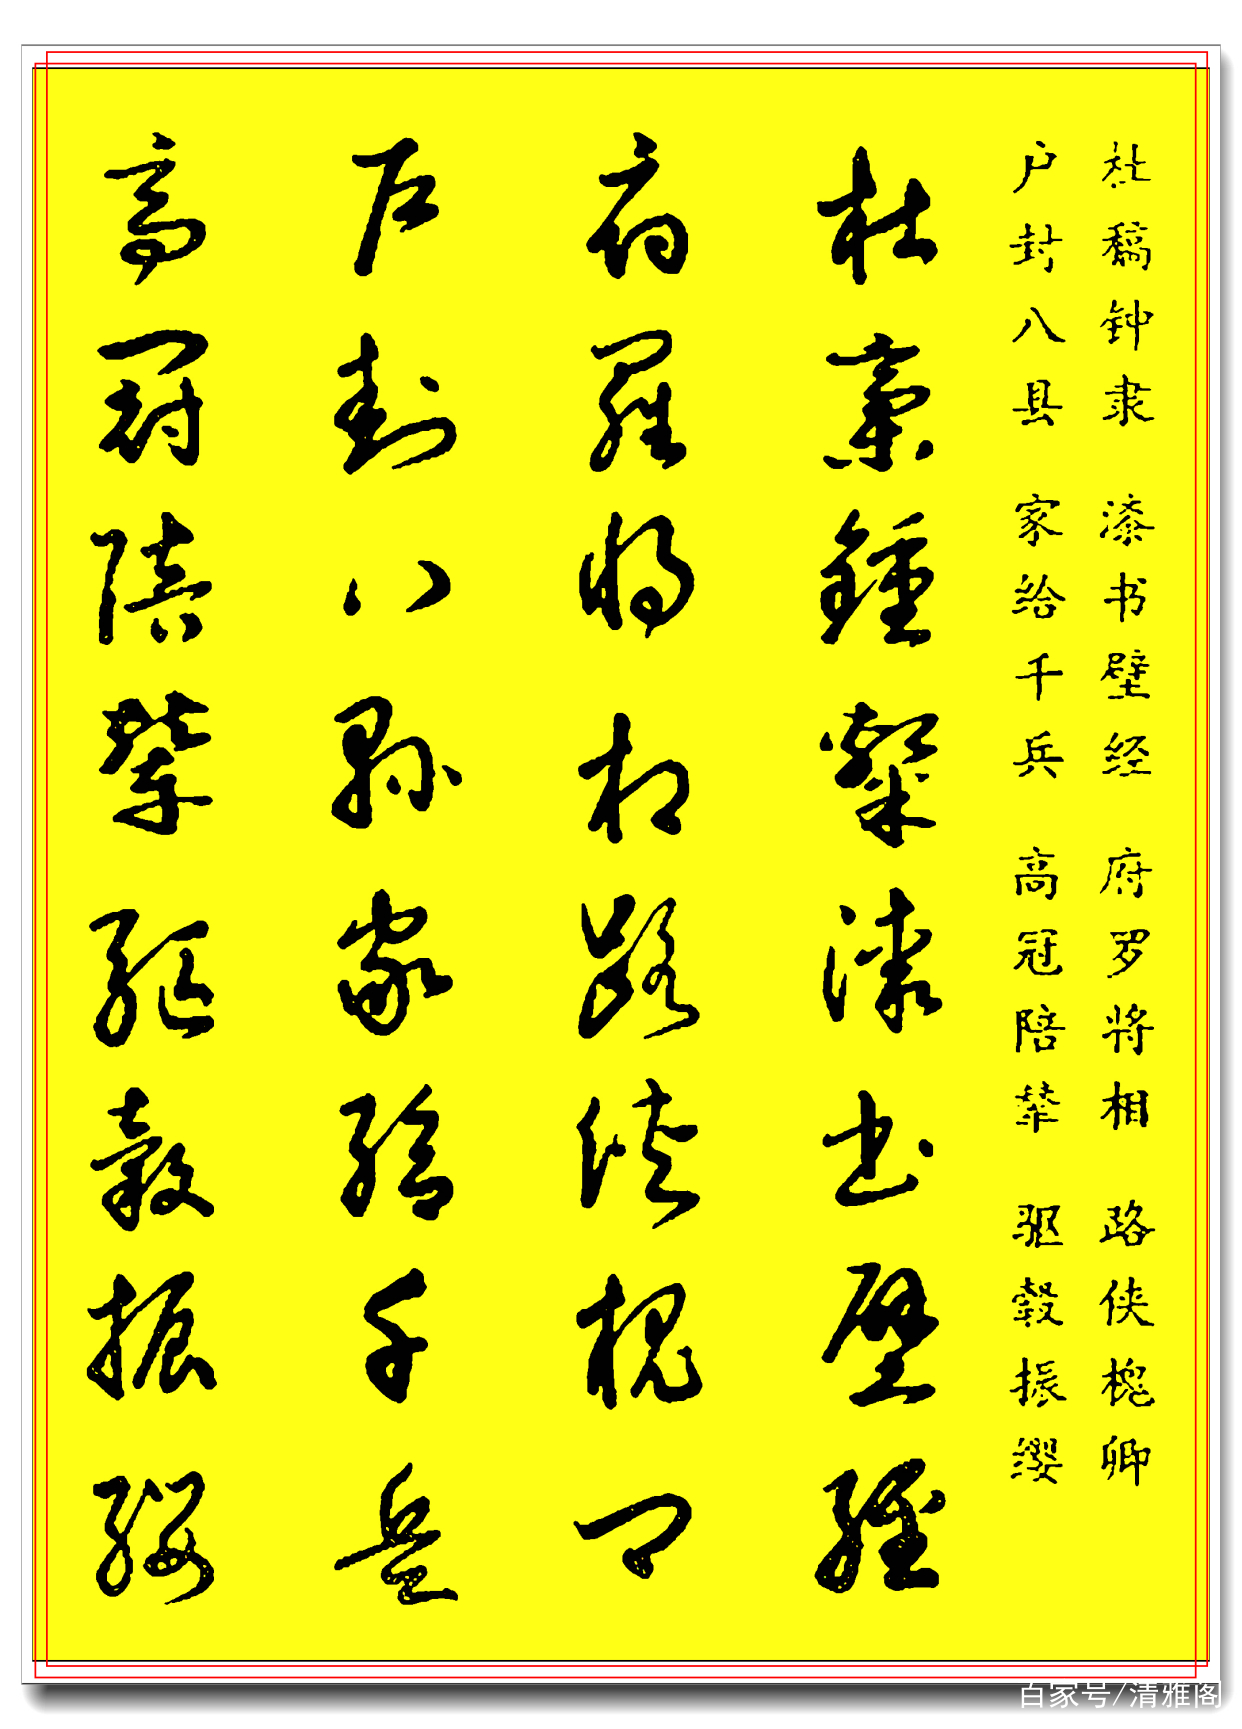 杜稿钟隶 漆书壁经 府罗将相 路侠槐卿
户封八县 家给千兵 高冠陪辇 驱毂振缨
杜稾鍾隸漆書壁經
府羅將相路俠槐卿
戶封八縣家給千兵
高冠陪輦驅轂振纓
百家号/清雅阁